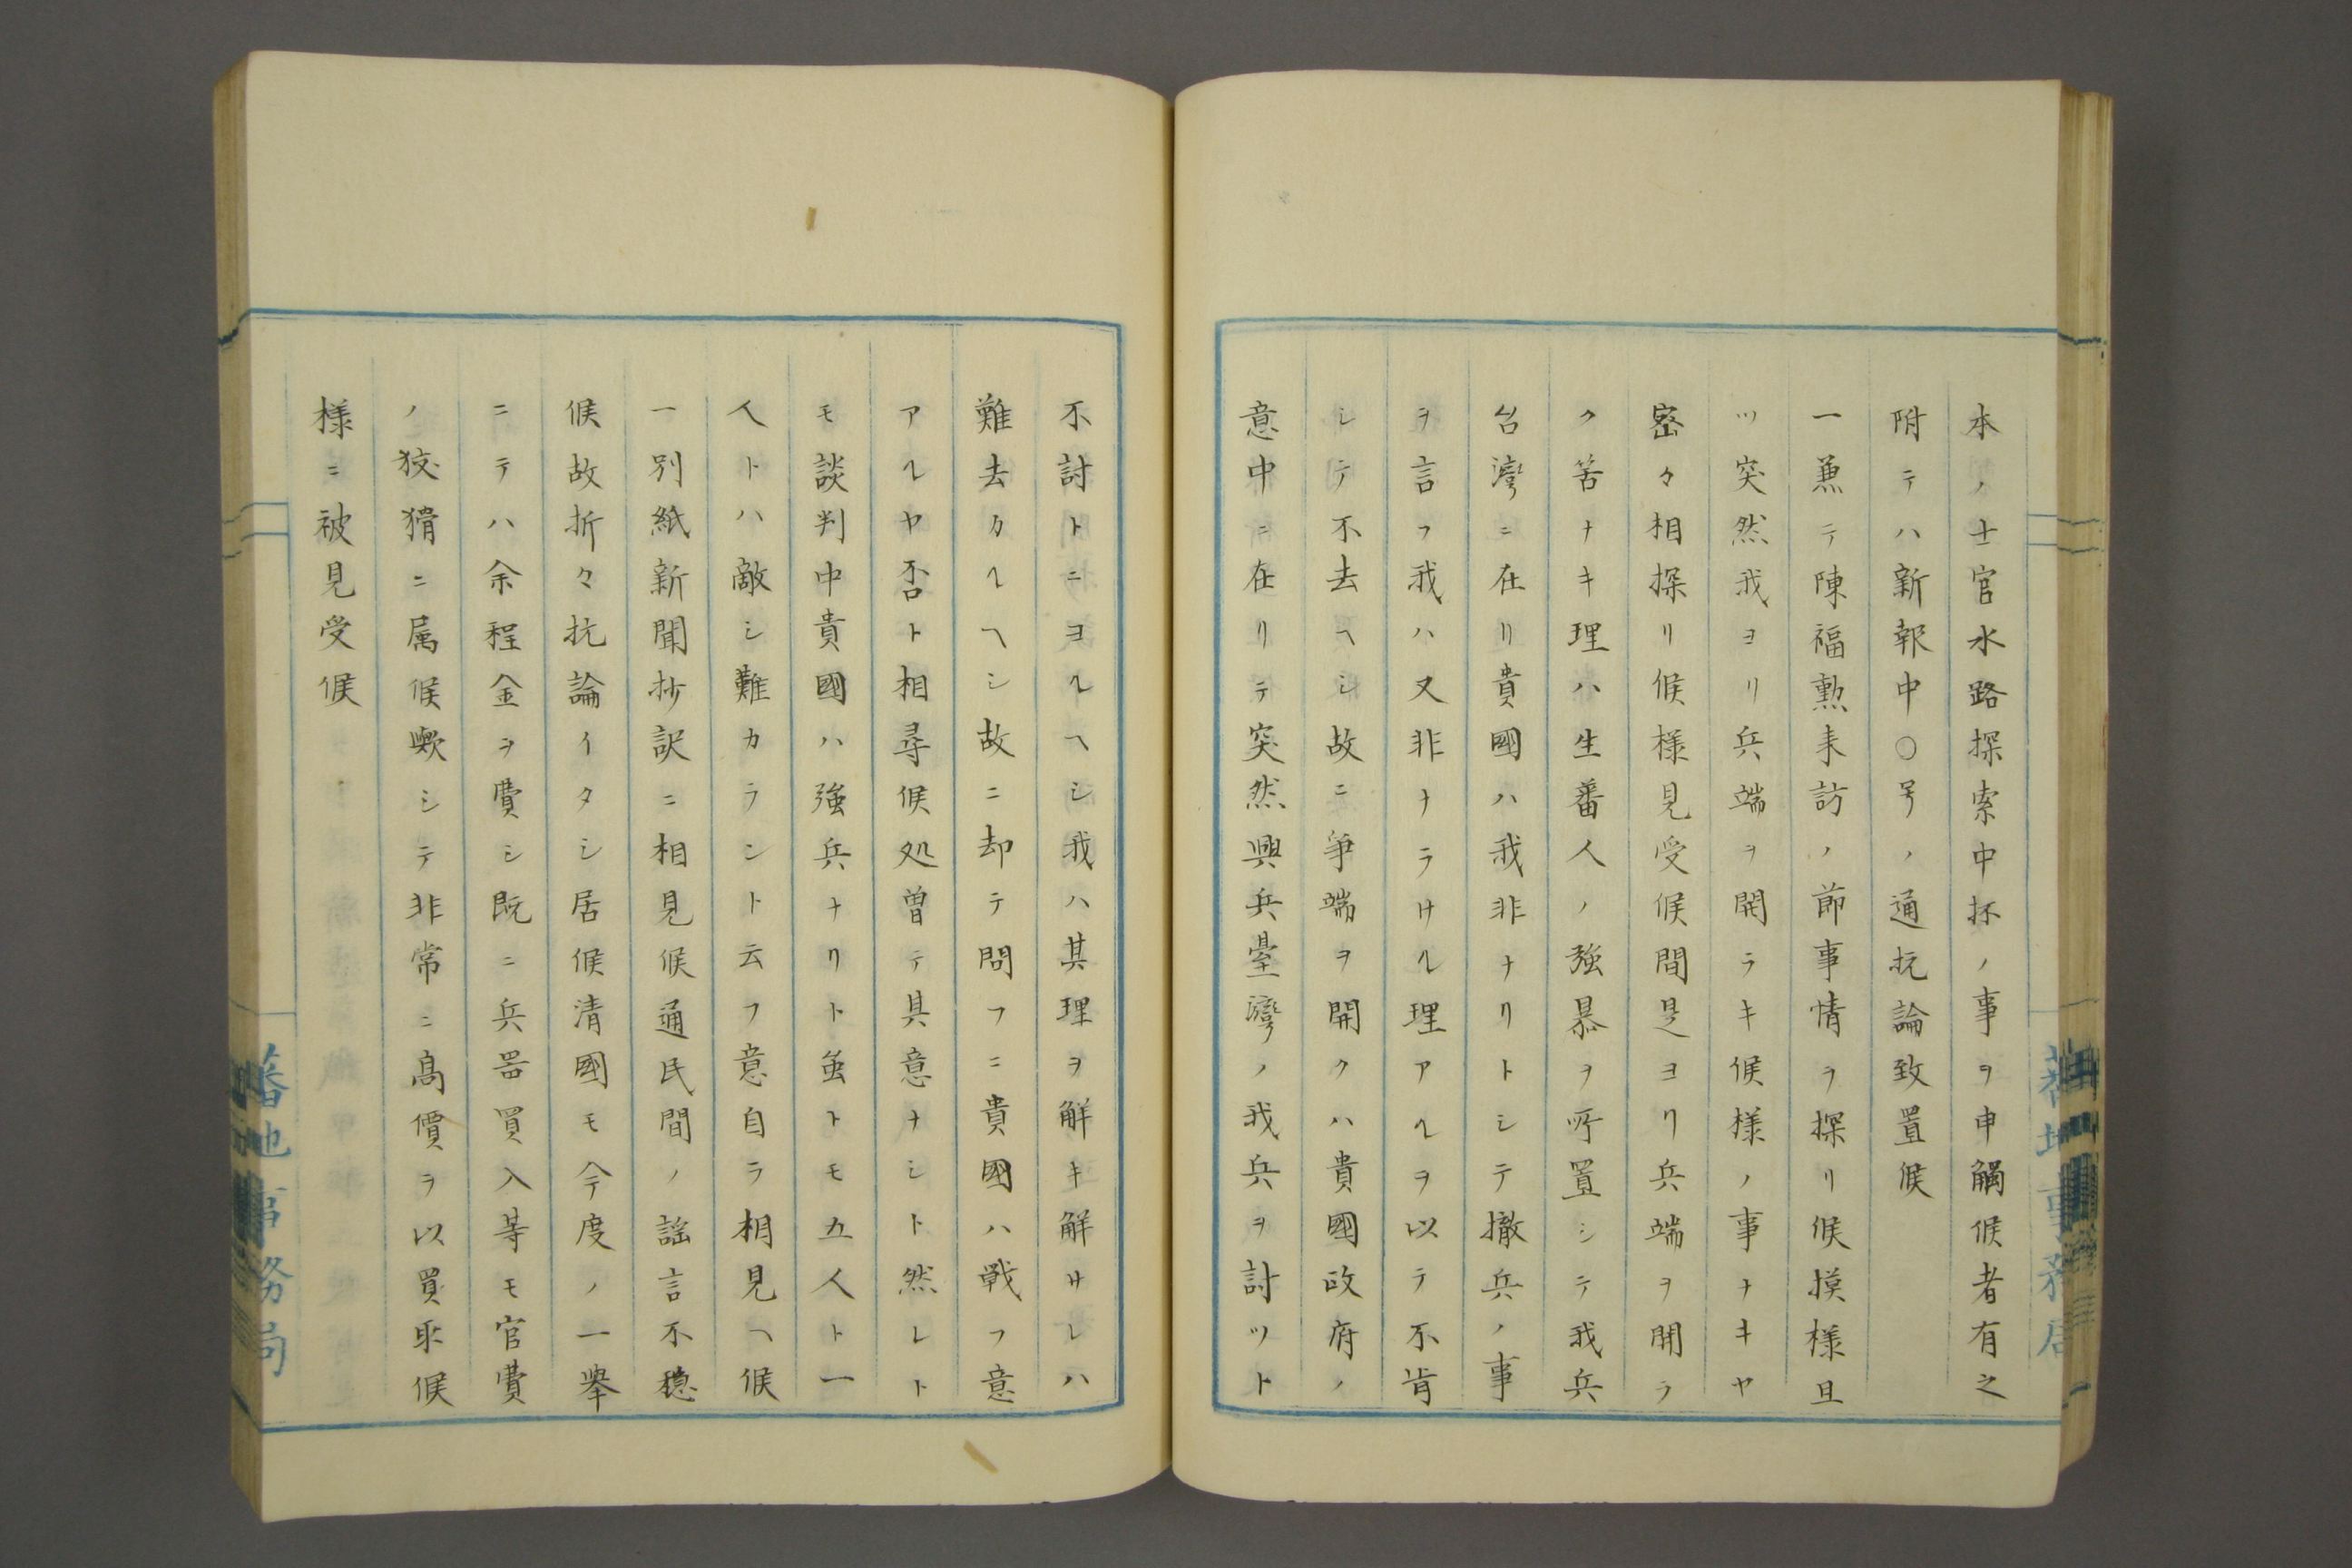 本ノ士官水路探索中抔ノ事ヲ申觸候者有之
附テハ新報中〇号ノ通抗論致置候
一兼テ陳福勲来訪ノ節事情ヲ探リ候摸様且
ツ突然我ヨリ兵端ヲ開ラキ候様ノ事ナキヤ
密々相探リ候様見受候間是ヨリ兵端ヲ開ラ
ク筈ナキ理ハ生番人ノ強暴ヲ所置シテ我兵
台灣ニ在リ貴國ハ我非ナリトシテ撤兵ノ事
ヲ言フ我ハ又非ナラサル理アルヲ以テ不肯
シテ不去ヘシ故ニ争端ヲ開クハ貴國政府ノ
意中ニ在リテ突然興兵臺灣ノ我兵ヲ討ツト
不討トニヨルヘシ我ハ其理ヲ解キ解サレハ
難去カルヘシ故ニ却テ問フニ貴國ハ戦フ意
アルヤ否ト相尋候処曽テ其意ナシト然レト
モ談判中貴國ハ強兵ナリト虽トモ五人ト一
人トハ敵シ難カラント云フ意自ラ相見ヘ候
一別紙新聞抄訳ニ相見候通民間ノ謡言不穏
候故折々抗論イタシ居候清國モ今度ノ一舉
ニテハ余程金ヲ費シ既ニ兵器買入等モ官費
ノ狡猾ニ属候歟シテ非常ニ高價ヲ以買取候
様ニ被見受候
蕃地事務局
蕃地事務局